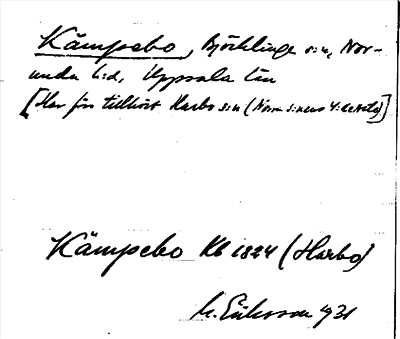 Kämpebo, Björklinge sn, Nor-
unda hd, Uppsala län
[Har förr tillhört Harbo sn (Norra
Kämpebo Kb 1824 (Harbo)
M. Eriksson 1931